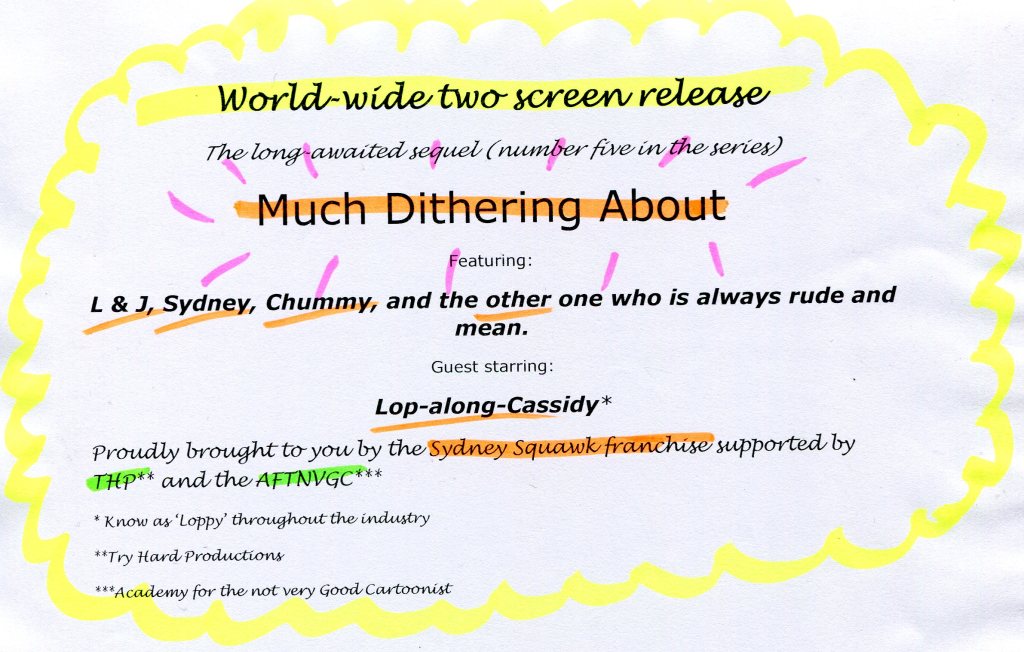 World-wide two screen release
The long-awaited sequel (number five in the series)
Much Dithering About
Featuring:
L & J, Sydney, Chummy, and the other one who is always rude and
mean.
Guest starring:
Lop-along-Cassidy*
Proudly brought to you by the Sydney Squawk franchise supported by
THP** and the AFTNVGC***
* Know as ‘Loppy’ throughout the industry
**Try Hard Productions
***Academy for the not very Good Cartoonist